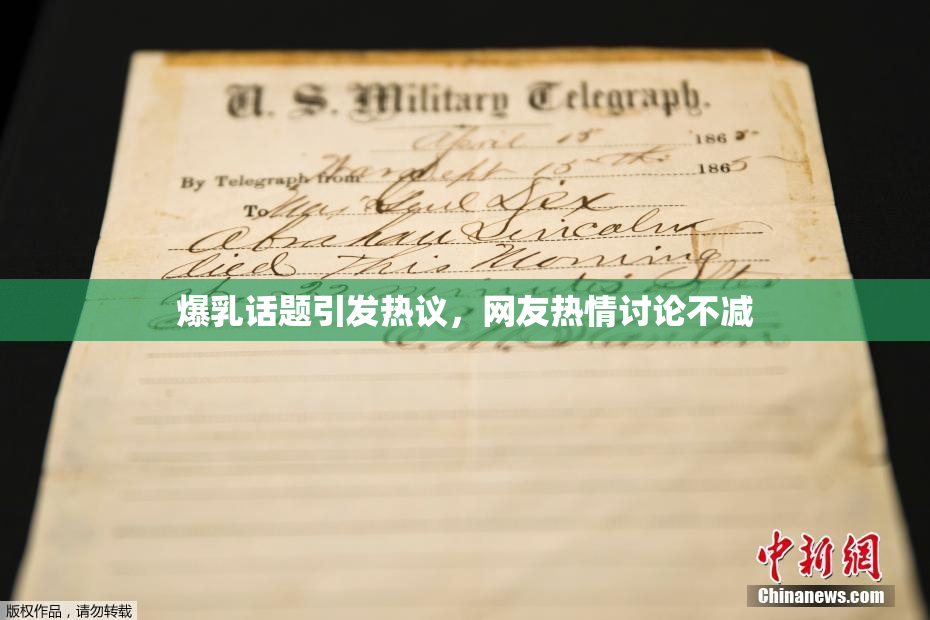 U. S. Military Telegraph.
April 15 1865
By Telegraph from War Dept 15th 1865
To Maj Genl Dix
Abraham Lincoln
died This Morning
at 22 minutes after
爆乳话题引发热议，网友热情讨论不减
E. M. Stanton
中新网
Chinanews.com
版权作品，请勿转载